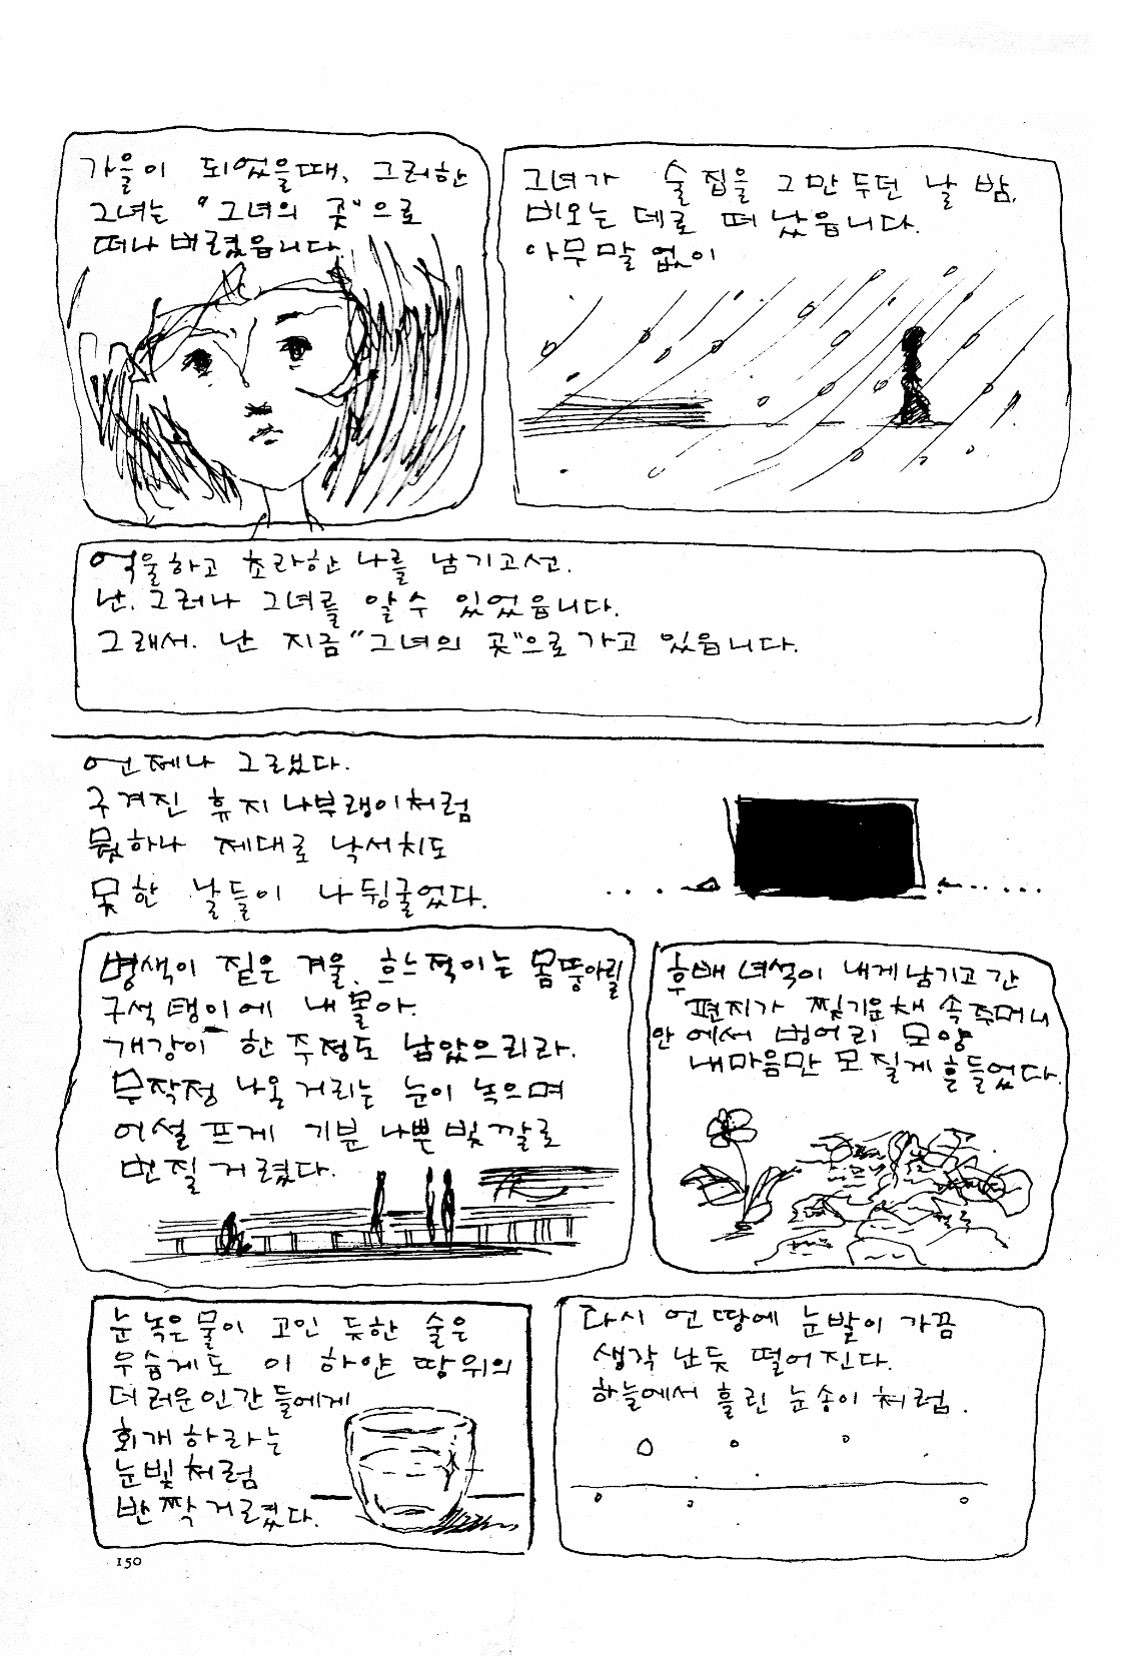 가을이 되었을때, 그러한
그녀는 "그녀의 곳"으로
떠나 버렸읍니다.
그녀가 술집을 그만두던 날 밤,
비오는 데로 떠났읍니다.
아무말 없이
억울하고 초라한 나를 남기고선.
난. 그러나 그녀를 알수 있었읍니다.
그래서. 난 지금 "그녀의 곳"으로 가고 있읍니다.
언제나 그랬다.
구겨진 휴지 나부랭이처럼
뭐하나 제대로 낙서치도
못한 날들이 나뒹굴었다.
병색이 짙은 겨울. 흐느적이는 몸뚱아릴
구석탱이에 내몰아.
개강이 한 주정도 남았으리라.
무작정 나온 거리는 눈이 녹으며
어설프게 기분 나쁜 빛깔로
번질거렸다.
후배 녀석이 내게 남기고 간
편지가 찢기운채 속주머니
안에서 벙어리 모양
내마음만 모질게 흔들었다.
눈 녹은 물이 고인 듯한 술은
우습게도 이 하얀 땅위의
더러운 인간들에게
회개하라는
눈빛처럼
반짝거렸다.
다시 언 땅에 눈발이 가끔
생각난듯 떨어진다.
하늘에서 흘린 눈송이처럼.
150